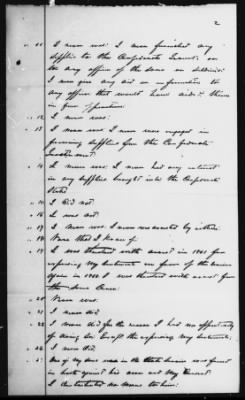 2
" 11 I never was. I never furnished any
supplies to the Confederate or
for any officer of the same or soldiers.
I never give any aid or information to
any officer that would have aided them
in their operations
" 12. I never was.
" 13 I never was I never was engaged in
furnishing supplies for the Confederate
Government.
" 14 I never was. I never had any interest
in any supplies brought into the Confederate
States
" 15 I did not.
" 16 I was not.
" 17 I never was. I never was arrested by either.
" 18 None that I know of.
" 19 I was threatened with arrest in 1861 for
expressing my sentiments in favor of the union
again in 1862 I was threatened with arrest from
the same
" 20 Never was.
" 21 I never did.
" 22 I never did for the reason I had no opportunity
of doing so. Except the expressing my sentiments.
" I never did.
One of my sons was in the was forced
in both against his own and my Consent
I contributed no more to him.